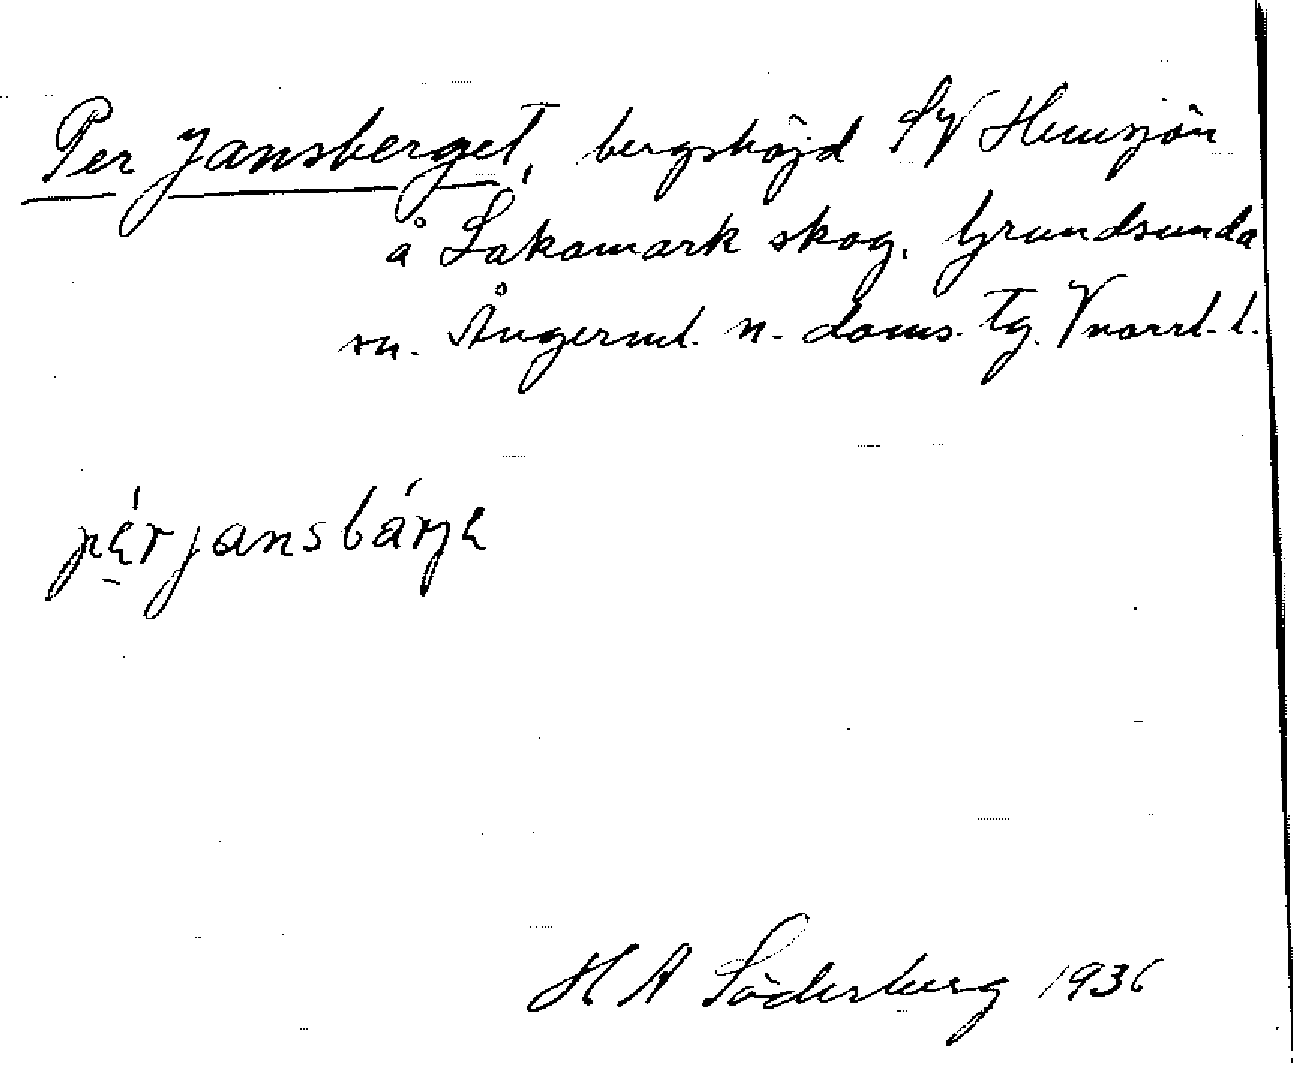 Per Jansberget, bergshöjd SV Hemsjön
å Lakamark skog. Grundsunda
sn. Ångerml. n. doms. tg. Vnorrl. l.
H A Söderberg 1936